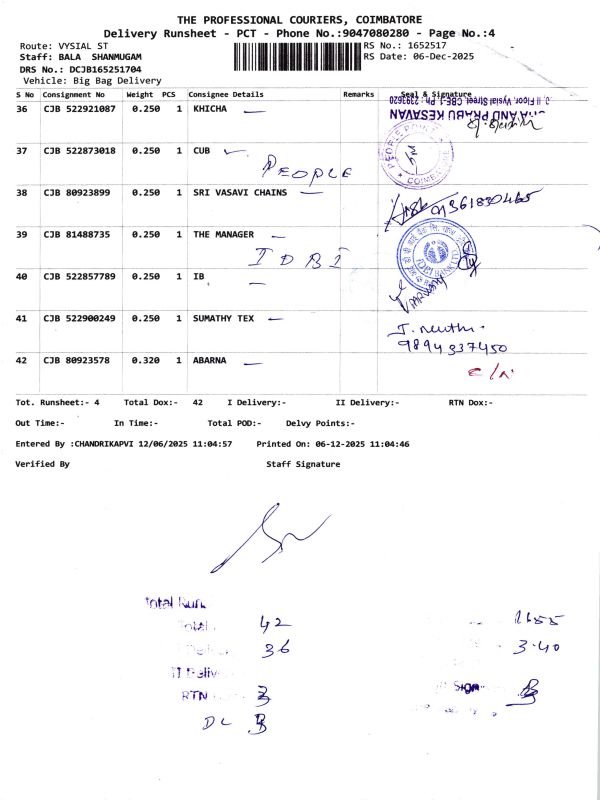 THE PROFESSIONAL COURIERS, COIMBATORE
Delivery Runsheet - PCT - Phone No.:9047080280 - Page No.:4
Route: VYSIAL ST
Staff: BALA SHANMUGAM
RS No.: 1652517
RS Date: 06-Dec-2025
DRS No.: DCJB165251704
Vehicle: Big Bag Delivery
S No Consignment No Weight PCS Consignee Details Remarks Seal & Signature
36 CJB 522921087 0.250 1 KHICHA
PRABU KESAVAN
II Floor, Vysial Street, CBE-1.
37 CJB 522873018 0.250 1 CUB
PEOPLE
COIMBATORE
38 CJB 80923899 0.250 1 SRI VASAVI CHAINS
9361830465
39 CJB 81488735 0.250 1 THE MANAGER
IDBI
IDBI BANK LTD
40 CJB 522857789 0.250 1 IB
41 CJB 522900249 0.250 1 SUMATHY TEX
9894937450
42 CJB 80923578 0.320 1 ABARNA
Tot. Runsheet:- 4 Total Dox:- 42 I Delivery:- II Delivery:- RTN Dox:-
Out Time:- In Time:- Total POD:- Delvy Points:-
Entered By :CHANDRIKAPVI 12/06/2025 11:04:57 Printed On: 06-12-2025 11:04:46
Verified By Staff Signature
Total Run
Total 42
36
3.40
II Deliv
RTN 3
Sign
DL